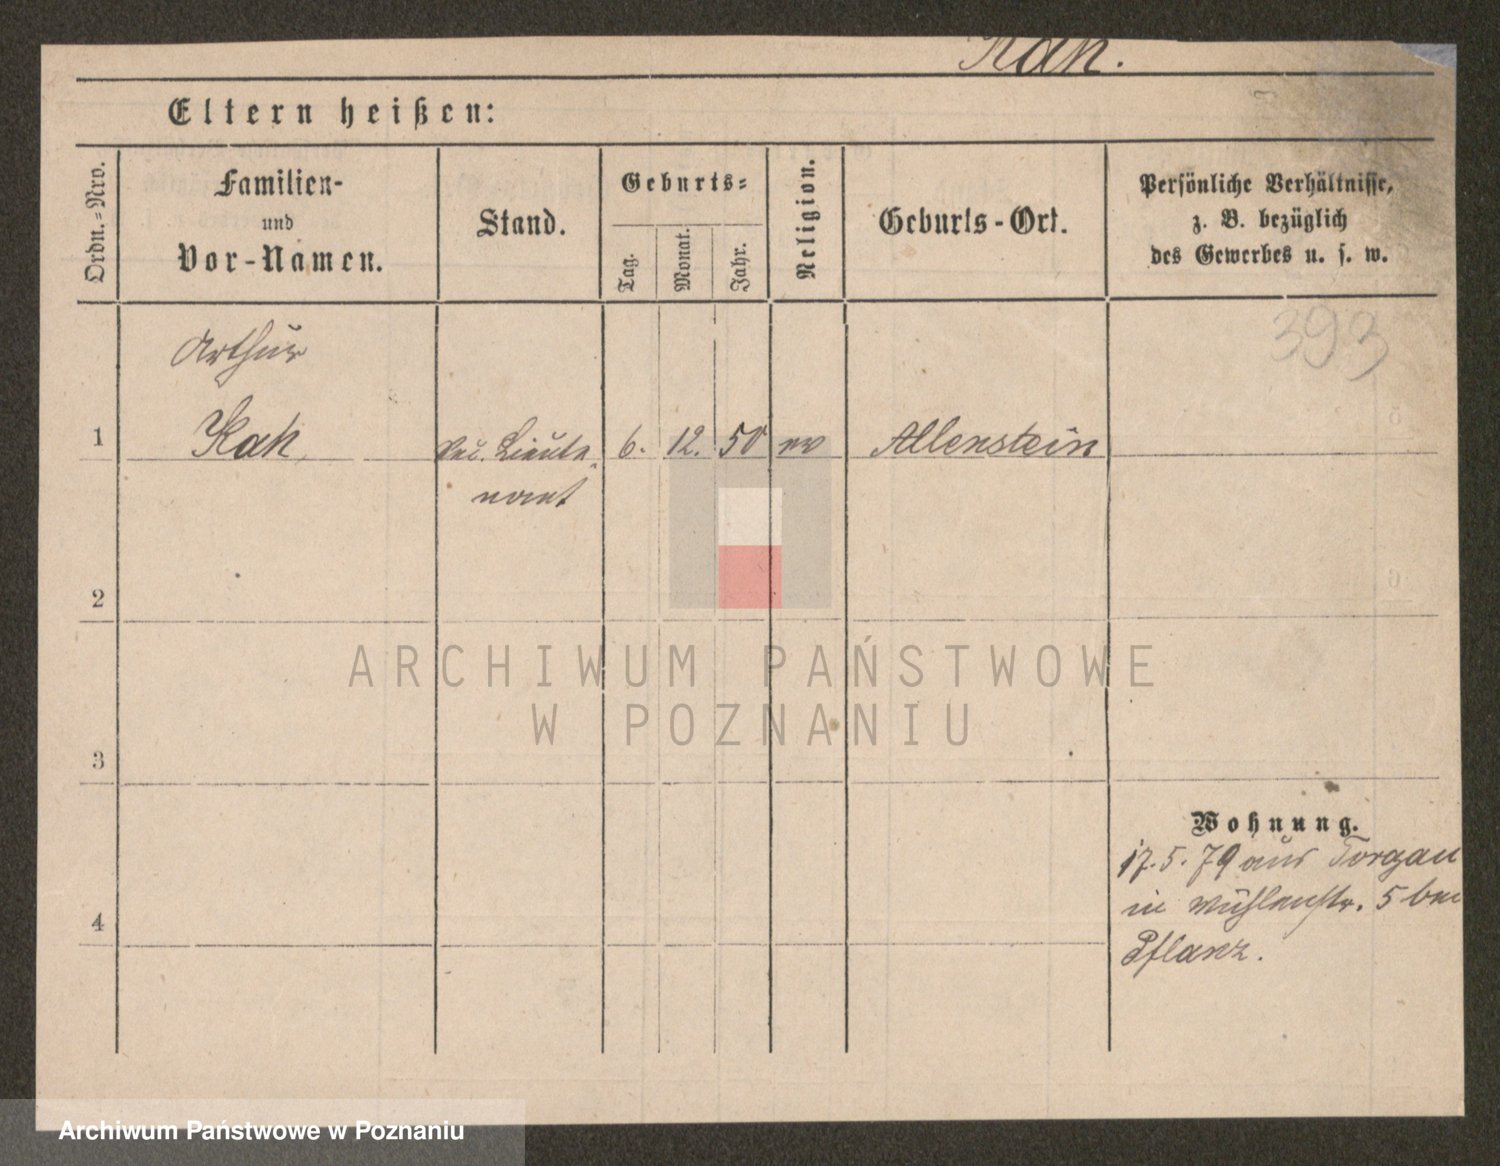 Kah.
Eltern heißen:
Ordn.=Nro.
Familien-
und
Vor-Namen.
Stand.
Geburts=
Tag.
Monat.
Jahr.
Religion.
Geburts-Ort.
Persönliche Verhältnisse,
z. B. bezüglich
des Gewerbes u. s. w.
393
Arthur
1 Kah, Sec. Lieute 6. 12. 50 ev Allenstein
nant
2
3
4
Wohnung.
17. 5. 79 aus Torgau
in Mühlenstr. 5 bei
Pflanz.
ARCHIWUM PAŃSTWOWE
W POZNANIU
Archiwum Państwowe w Poznaniu